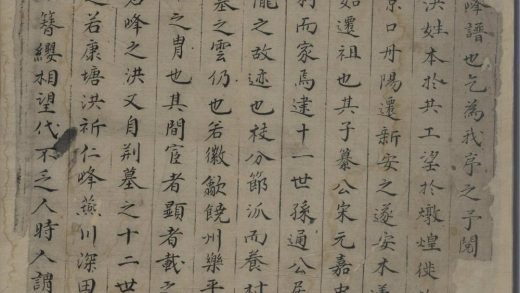 峰譜也乞為我序之予閱
洪姓本於共工望於燉煌徙
京口丹陽遷新安之遂安木
始遷祖也其子纂公宋元嘉
村而家焉逮十一世孫通公居
隴之故迹也枝分節派而養村
墓之雲仍也若徽歙饒州樂平
之胄也其間宦者顯者載之
峰之洪又自荆墓之十二世
之若康塘洪祈仁峰燕川深田
簪纓相望代不乏人時人謂